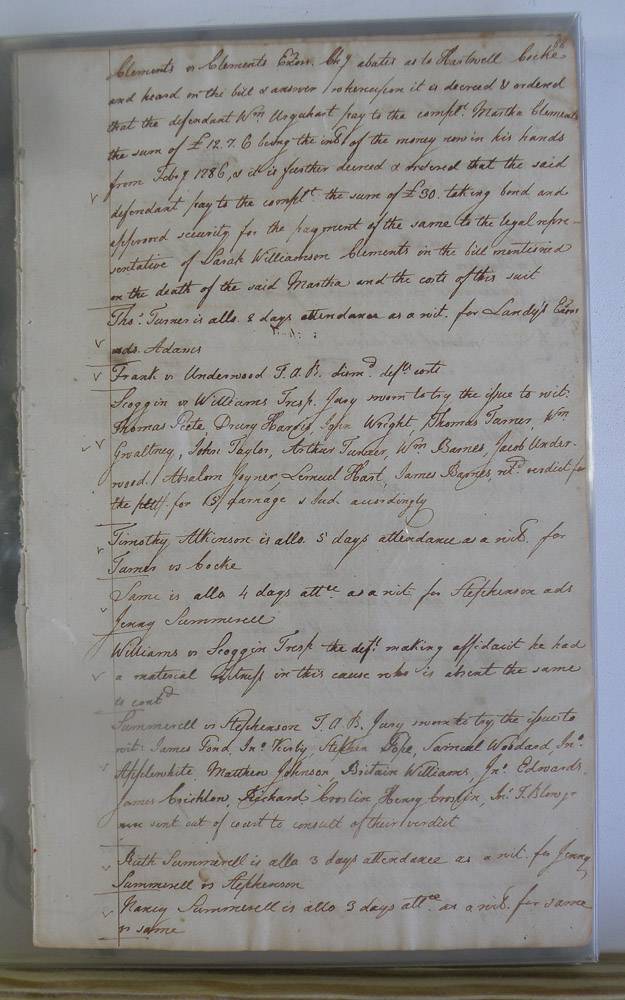 Clements vs Clements Exors. Chy abates as to Hartwell Cocke
and heard on the bill & answer whereupon it is decreed & ordered
that the defendant Wm Urquhart pay to the complt. Martha Clements
the sum of £12.7.6 being the int. of the money now in his hands
from Feby 1786, & it is further decreed & ordered that the said
defendant pay to the complt the sum of £30. taking bond and
approved security for the payment of the same to the legal repre-
sentative of Sarah Williamson Clements in the bill mentioned
on the death of the said Martha and the costs of this suit
Thos. Turner is allo. 2 days attendance as a wit. for Landy's Exors
ads. Adams
Frank vs Underwood T.A.B. dismd. defts costs
Scoggin vs Williams Tresp. Jury sworn to try the issue to wit.
Thomas Peete, Drury Harris, John Wright, Thomas Turner, Wm
Gwaltney, John Taylor, Arthur Turner, Wm Barnes, Jacob Under-
wood, Absalom Joyner Lemuel Hart, James Barnes, retd. verdict for
the pltff. for 15/ damage & Jud. accordingly
Timothy Atkinson is allo. 5 days attendance as a wit. for
Turner vs Cocke
Same is allo 4 days attce. as a wit. for Stephenson ads
Jenny Summerell
Williams vs Scoggin Tresp. the deft. making affidavit he had
a material witness in this cause who is absent the same
is contd
Summerell vs Stephenson T.A.B. Jury sworn to try the issue to
wit: James Pond, Jno. Kirby Stephen Pope, Samuel Woodard, Jno.
Applewhite, Matthew Johnson, Britain Williams, Jno. Edwards,
James Crichlow, Richard Croslin Henry Croslin, Jno. T. Blow jr
were sent out of court to consult of their verdict
Ruth Summerell is allo 3 days attendance as a wit. for Jenny
Summerell vs Stephenson
Nancy Summerell is allo 3 days attce. as a wit. for same
vs same